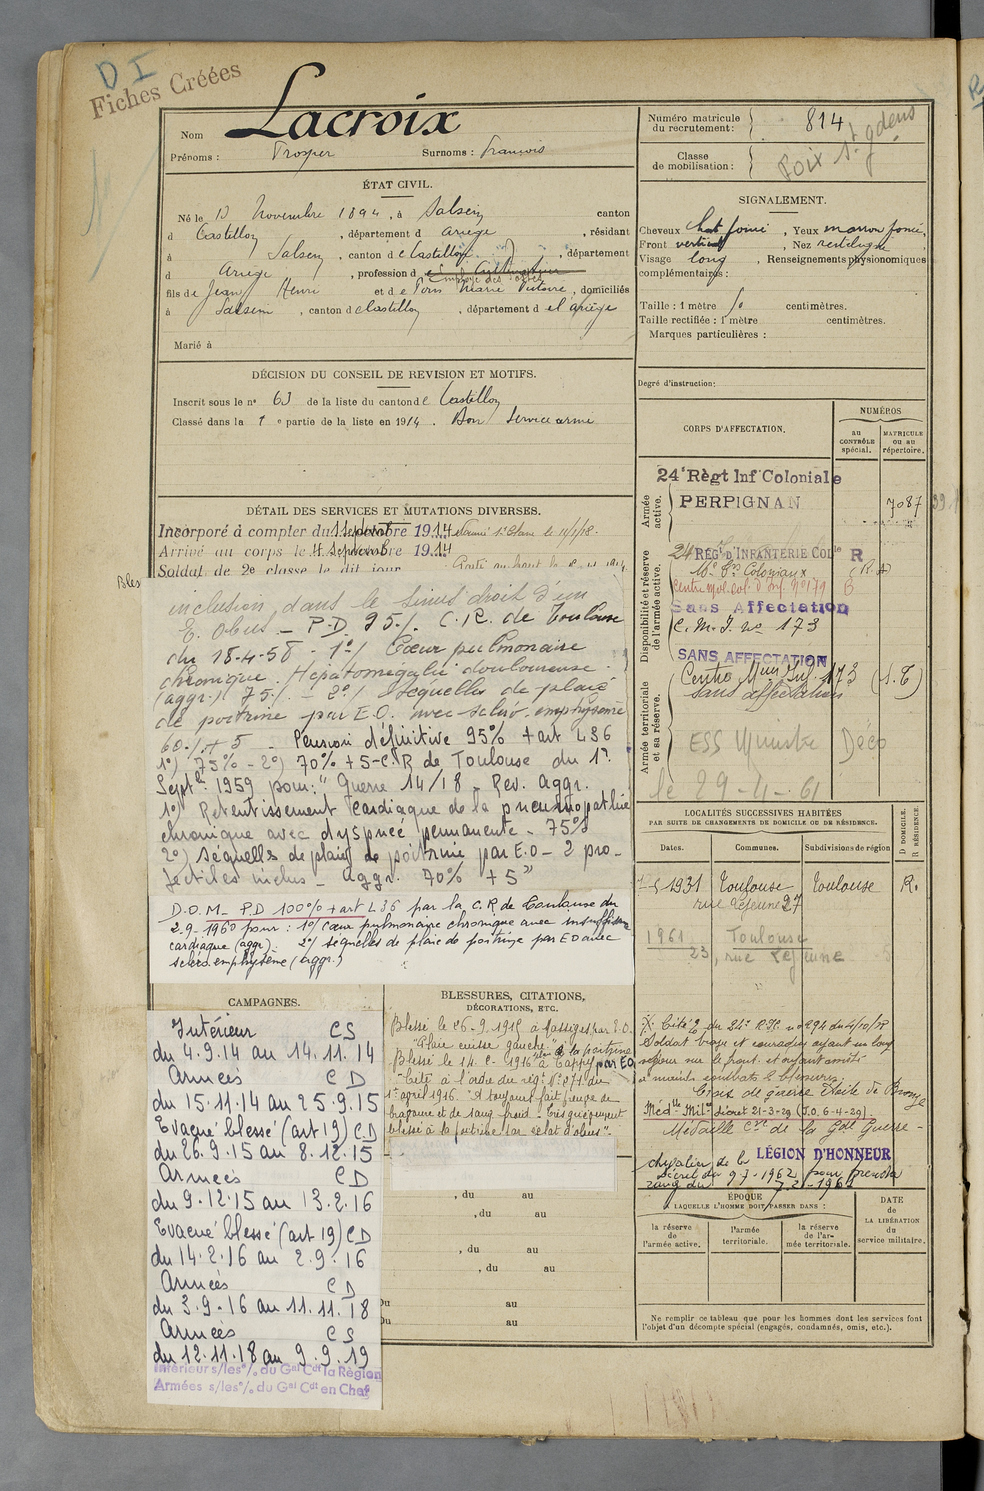 D I
Fiches Créées
Nom Lacroix
Prénoms : Prosper Surnoms : François
ÉTAT CIVIL.
Né le 13 Novembre 1894, à Salsein canton
d Castillon, département d Ariège, résidant
à Salsein, canton de Castillon, département
d Ariège, profession de Cultivateur
employé des
fils de Jean Henri et de Marie Victoire, domiciliés
à Salsein, canton de Castillon, département de l'Ariège
Marié à
DÉCISION DU CONSEIL DE REVISION ET MOTIFS.
Inscrit sous le n° 63 de la liste du canton de Castillon
Classé dans la 1e partie de la liste en 1914. Bon Service armé
DÉTAIL DES SERVICES ET MUTATIONS DIVERSES.
Incorporé à compter du 1 Septembre 1914
Arrivé au corps le 4 Septembre 1914
Soldat de 2e classe le dit jour
Bles
inclusion dans le sinus droit d'un
E. Obus - P.D. 95% C.R. de Toulouse
du 18-4-58 - 1°/ Cœur pulmonaire
chronique. Hépatomégalie douloureuse.
(aggr.) 75% - 2°/ Séquelles de plaie
de poitrine par E.O. avec scléro-emphysème
60% + 5 - Pension définitive 95% + art L36
1°) 75% - 2°) 70% + 5 - C.R de Toulouse du 1er
Septbre 1959 pour: "Guerre 14/18 - Rev. Aggr.
1°) Retentissement cardiaque de la pneumopathie
chronique avec dyspnée permanente - 75%
2°) Séquelles de plaie de poitrine par E.O - 2 pro-
jectiles inclus - Aggr. 70% + 5"
D.O.M - P.D 100% + art L36 par la C.R de Toulouse du
2.9.1960 pour : 1°/ Cœur pulmonaire chronique avec insuffisance
cardiaque (aggr). 2°/ séquelles de plaie de poitrine par EO avec
scléro emphysème (aggr.)
CAMPAGNES.
Intérieur CS
du 4.9.14 au 14.11.14
Armées CD
du 15.11.14 au 25.9.15
Evacué blessé (art 19) CD
du 26.9.15 au 8.12.15
Armées CD
du 9.12.15 au 13.2.16
Evacué blessé (art 19) CD
du 14.2.16 au 2.9.16
Armées CD
du 3.9.16 au 11.11.18
Armées CS
du 12.11.18 au 9.9.19
Intérieur s/les°/° du Gal Cdt la Région
Armées s/les°/° du Gal Cdt en Chef
BLESSURES, CITATIONS,
DÉCORATIONS, ETC.
Blessé le 26-9-1915 à Massiges par E.O.
"Plaie cuisse gauche"
plaie à la poitrine
Blessé le 14-2-1916 à Cappy par EO
"Cité à l'ordre du régt N° 971 du
1er avril 1916. "A toujours fait preuve de
bravoure et de sang froid. Très grièvement
blessé à la poitrine par éclat d'obus".
, du au
, du au
, du au
, du au
Du au
Du au
Numéro matricule
du recrutement: 814
Classe
de mobilisation: Foix St Gdens
SIGNALEMENT.
Cheveux chat foncé, Yeux marron foncé,
Front vertical, Nez rectiligne
Visage long, Renseignements physionomiques
complémentaires :
Taille : 1 mètre 50 centimètres.
Taille rectifiée : 1 mètre centimètres.
Marques particulières :
Degré d'instruction:
CORPS D'AFFECTATION.
NUMÉROS
au
CONTRÔLE
spécial.
MATRICULE
ou au
répertoire.
Armée
active.
24e Règt Inf Coloniale
PERPIGNAN 7087
Disponibilité et réserve
de l'armée active.
24 REGt D'INFANTERIE COLle R
Coloniaux
Centre Mob. Col. d'Inf. N° 179
Sans Affectation
C. M. I. n° 173
SANS AFFECTATION
Armée territoriale
et sa réserve.
Centre Mon Inf. 173 (S.T)
sans affectation
ESS Ministre Déco
le 29-4-61
LOCALITÉS SUCCESSIVES HABITÉES
PAR SUITE DE CHANGEMENTS DE DOMICILE OU DE RÉSIDENCE.
Dates. Communes. Subdivisions de région
D DOMICILE.
R RÉSIDENCE.
1931 Toulouse Toulouse R.
rue Lejeune 27
1961 Toulouse
23, rue Lejeune
Cité O du 24e R.I.C. n° 294 du 4/10/18
Soldat brave et courageux ayant un long
séjour sur le front et ayant assisté
à maints combats 2 blessures.
Croix de guerre Etoile de Bronze
Médlle Milre décret 21-3-29 (J.O. 6-4-29).
Médaille Cve de la Gde Guerre -
chevalier de la LÉGION D'HONNEUR
Décret du 9-7-1962 pour prendre
rang du 1962
ÉPOQUE
À LAQUELLE L'HOMME DOIT PASSER DANS :
la réserve
de
l'armée active.
l'armée
territoriale.
la réserve
de l'ar-
mée territoriale.
DATE
de
LA LIBÉRATION
du
service militaire.
Ne remplir ce tableau que pour les hommes dont les services font
l'objet d'un décompte spécial (engagés, condamnés, omis, etc.).